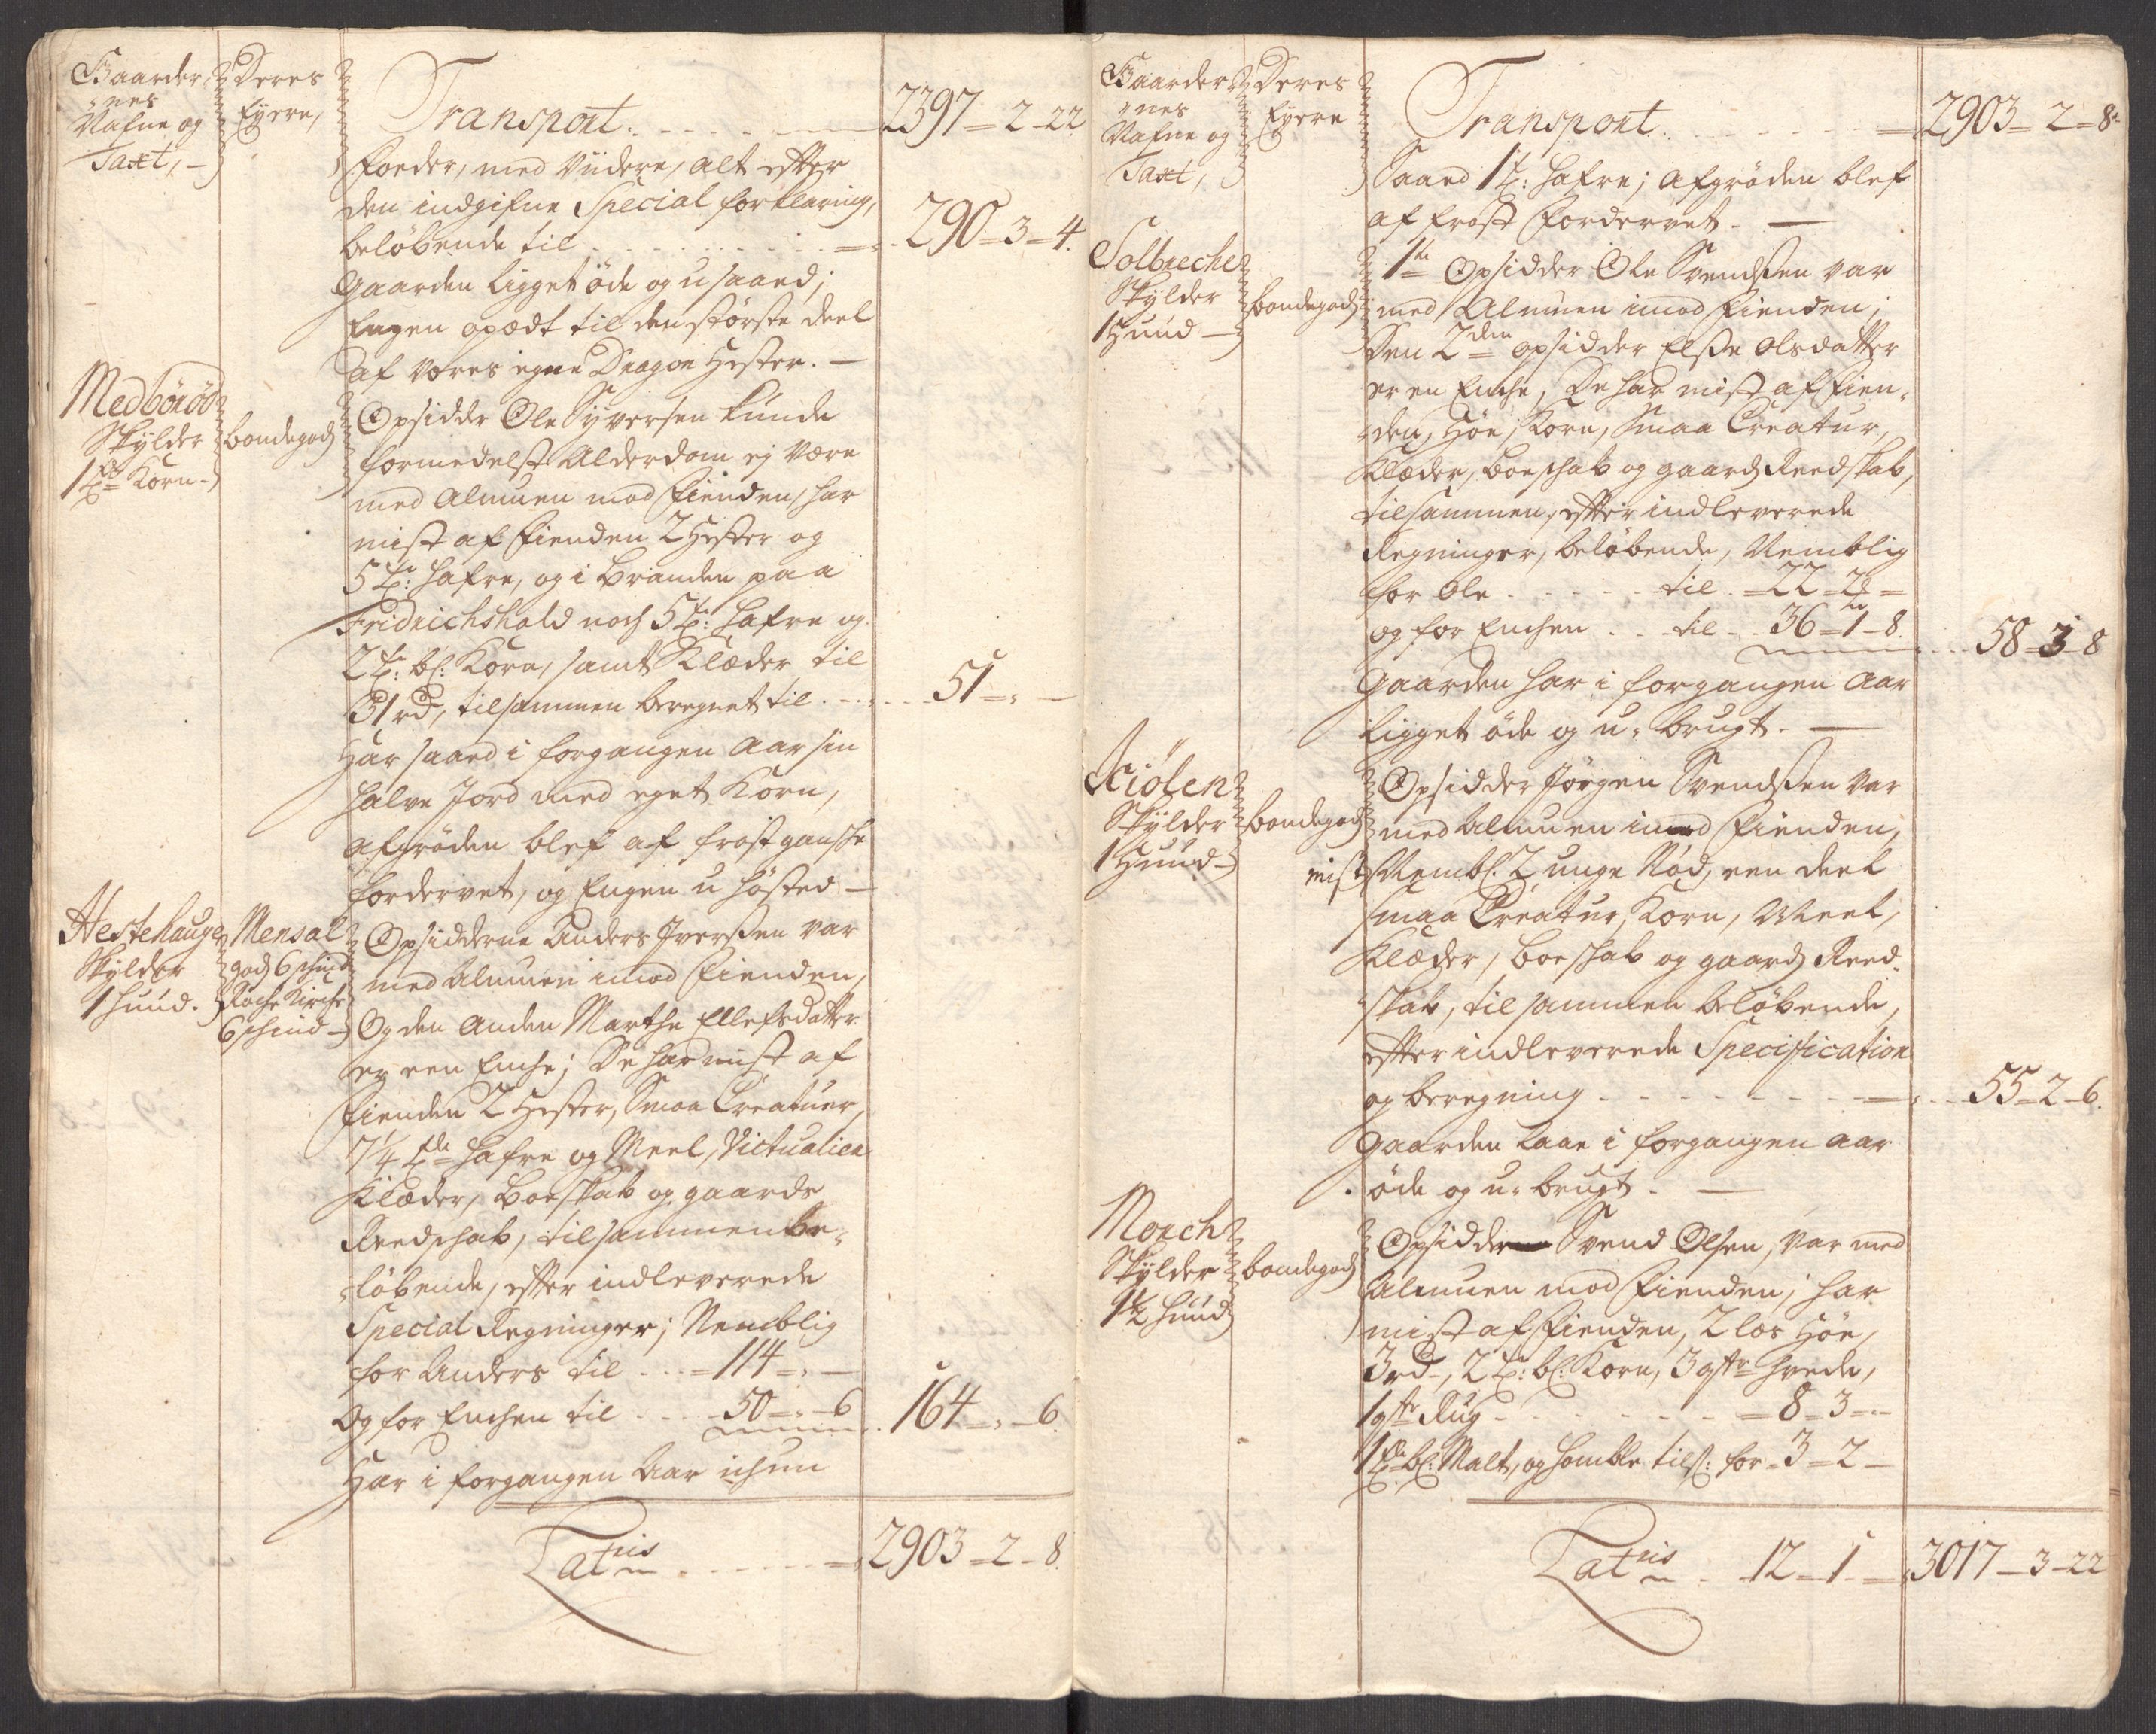 Gaarder
nes
Nafne og
Taxt,
Deres
Eyere,
Transport. 2397-2-22
foeder, med Viidere, alt efter
den indgifne Special forklaring,
beløbende til 290-3-4.
Gaarden Ligget øde og usaaed;
Engen opædt til den største deel
af vores egne Dragon Hester.
Medböröd
Skylder
1 Korn
bondegods
Opsidder Ole Syversen kunde
formedelst Alderdom ej være
med Almuen mod fienden, har
mist af fienden 2 Hester og
5 t: hafre, og i branden paa
Fridrichshald noch 5 t: hafre og
2 t: bl: Korn, samt Klæder til
31 rd, tilsammen beregnet til 51
Har saaed i forgangen Aar sin
halve Jord med eget Korn,
afgröden blef af frost gansche
fordervet, og Engen u høsted
Hestehauge
Skylder
1 huud.
Mensal
gods 6 schind
Kirche
6 schind
Opsidderne Anders Iversen var
med almuen imod fienden,
Og den Anden Marthe Ellefsdatter
er een Enche; De har mist af
fienden 2 Hester, Smaa Creatuer,
7 1/4 tde hafre og Meel, Victualier
Klæder, Boeskab og gaards
Reedschab, tilsammen be-
løbende, efter indleverede
Special Regninger; Nemblig
for Anders til 114
Og for Enchen til 50-6 164-6.
Har i forgangen Aar ichun
Latris 2903-2-8.
Gaarder
nes
Nafne og
Taxt,
Deres
Eyere
Transport. 2903-2-8.
Saaed 1 t: hafre; Afgröden blef
af frost fordervet.
Solbreche
Skylder
1 Huud
bondegods
1te Opsidder Ole Svendsen var
med Almuen imod fienden;
Den 2den opsidder Else Olsdatter
er en Enche, De har mist af fien-
den, Höe, Korn, Smaa Creatur,
Klæder, boeschab og gaards Reedskab,
tilsammen, efter indleverede
Regninger, beløbende, Nemblig
for Ole til 22-2
og for Enchen til 36-1-8. 58-3-8
Gaarden har i forgangen Aar
Ligget öde og u-brugt.
Kiölen
Skylder
1 Huud
bondegods
Opsidder Jörgen Svendsen var
med almuen imod fienden,
mist Nembl. 2 unge Nød, een deel
smaa Creatur, Korn, Meel,
Klæder, boeschab og gaards Reed-
skab, tilsammen beløbende,
efter indleverede Specification
og beregning 55-2-6.
Gaarden Laae i forgangen aar
øde og u-brugt.
Morch
Skylder
1 1/2 huud
bondegods
Opsidder Svend Olsen, var med
Almuen mod fienden; har
mist af fienden, 2 læs Höe,
3 rd, 2 t: bl: Korn, 3 qtr hvede,
1 qtr Rug 8-3
1 bl: Malt, og homble tils: for 3-2
Latris 12-1 3017-3-22